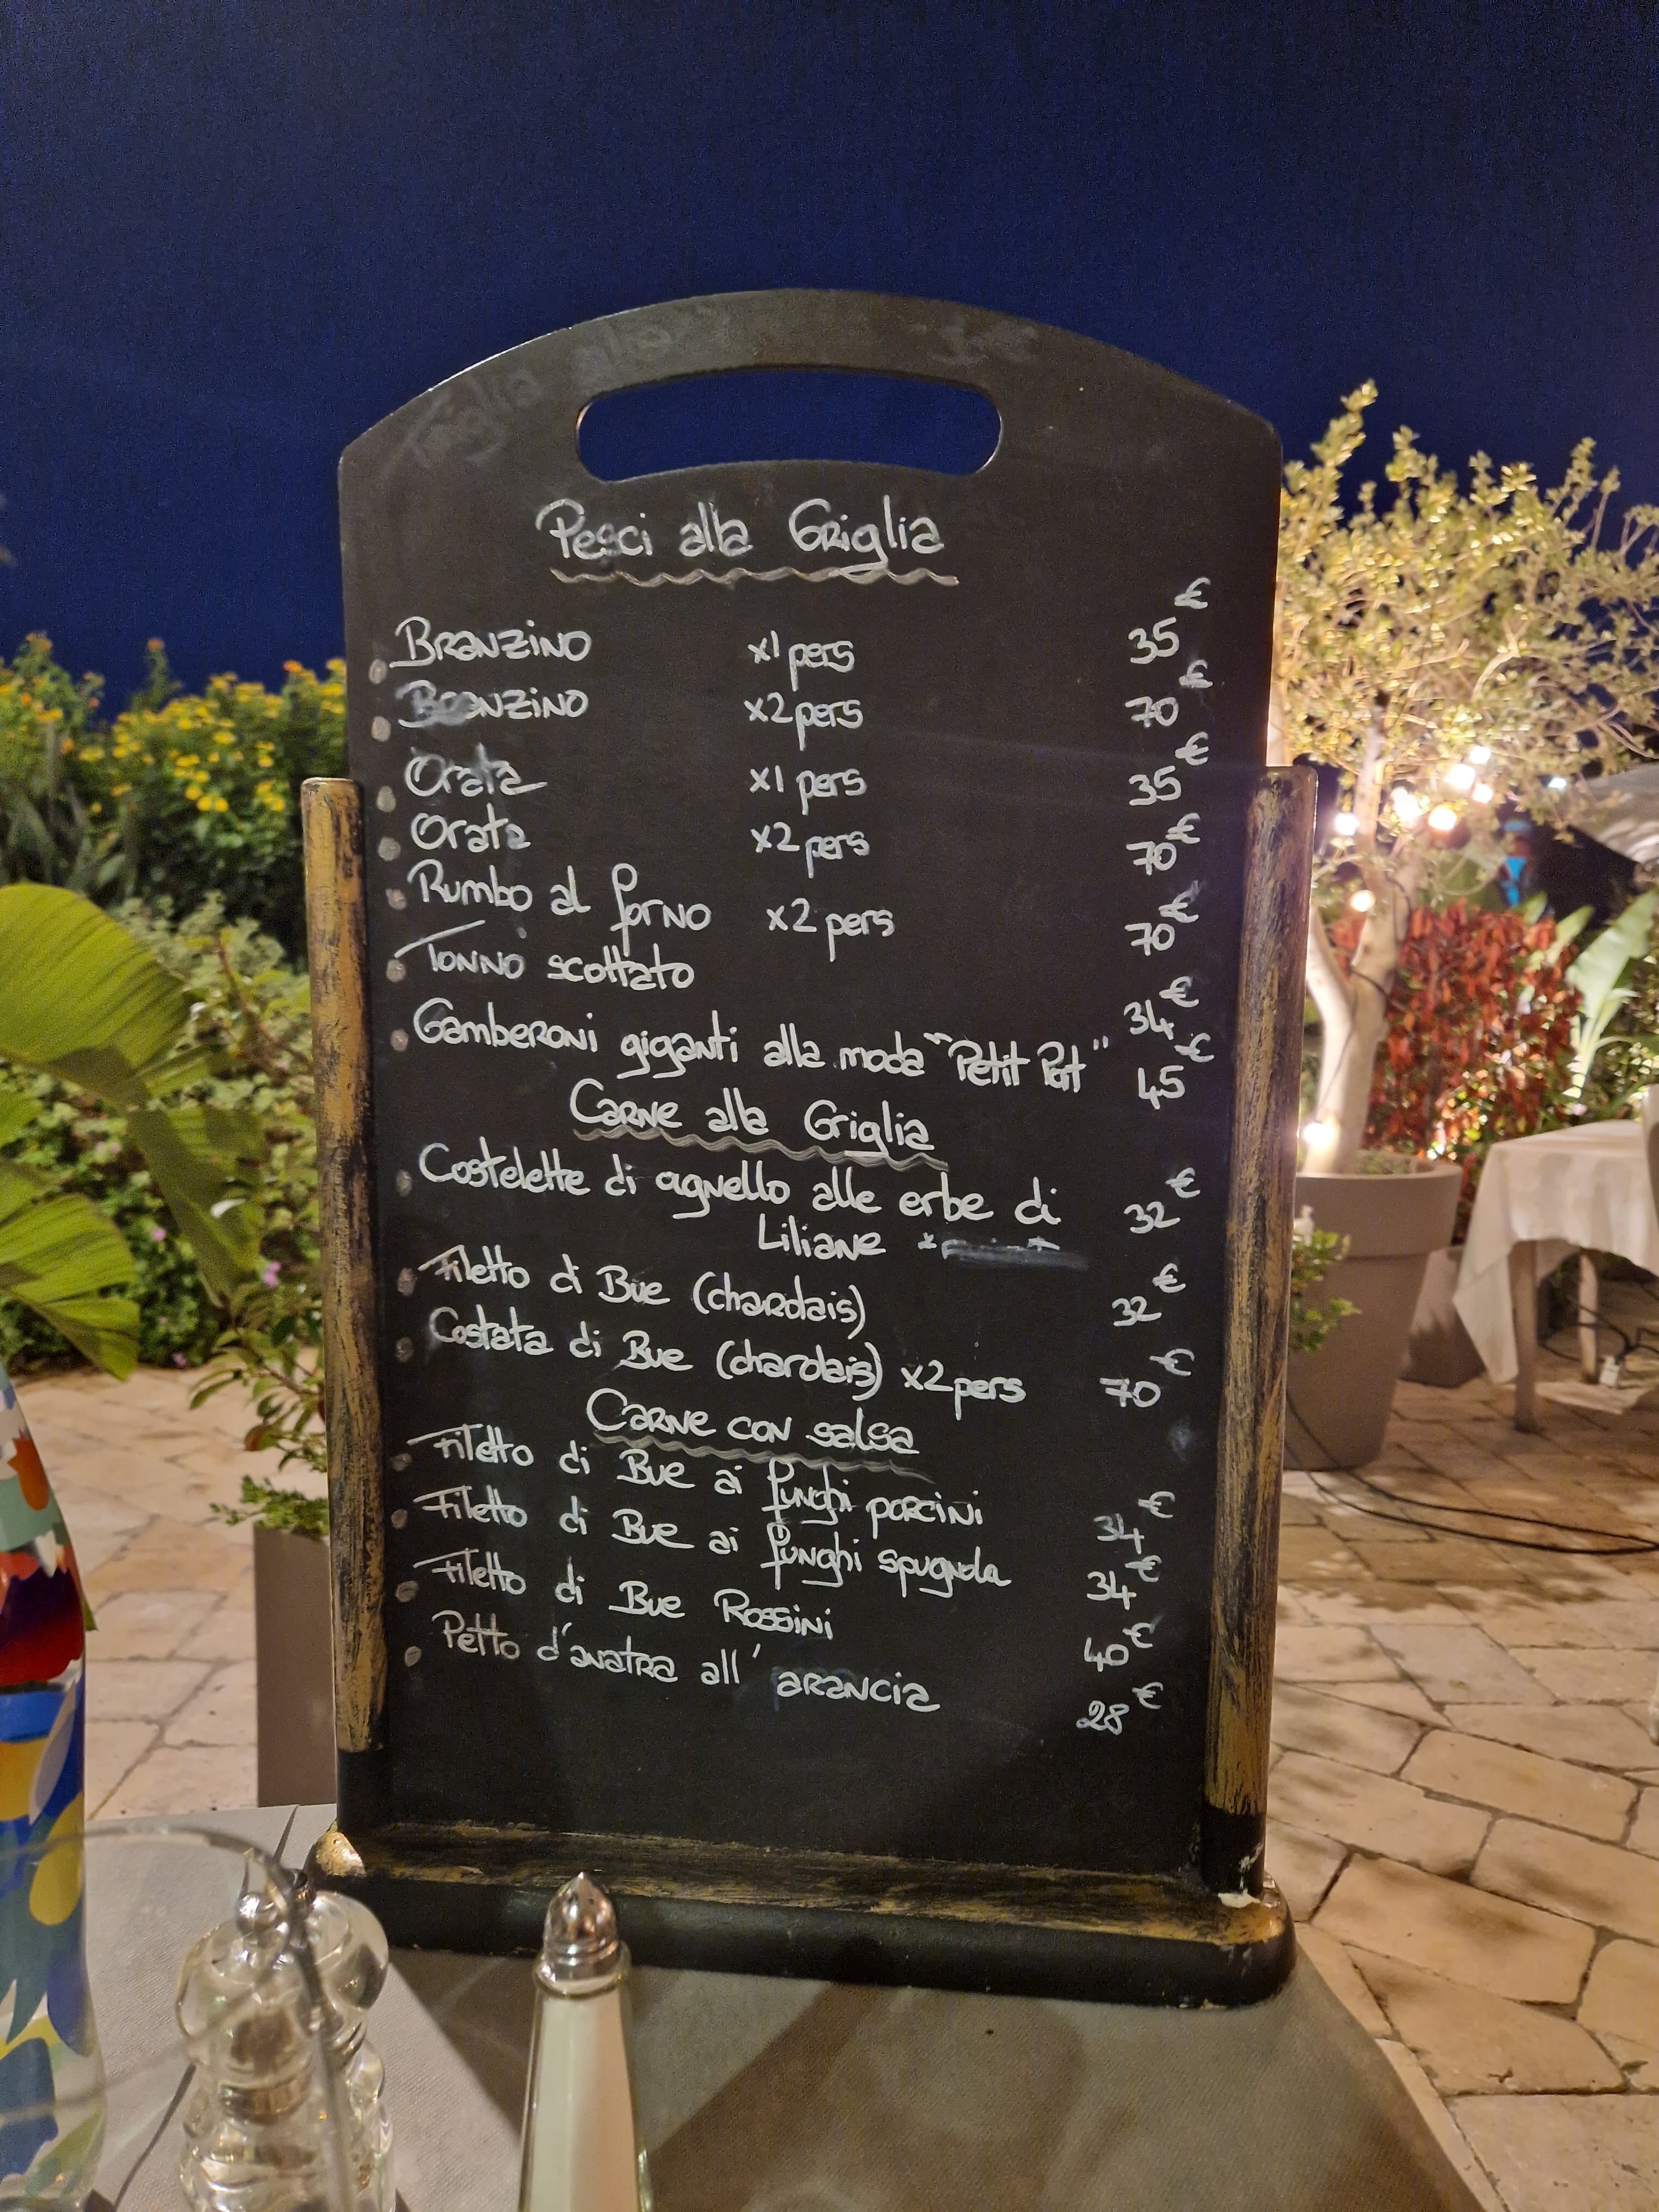 Pesci alla Griglia
Branzino x1 pers 35€
Branzino x2 pers 70€
Orata x1 pers 35€
Orata x2 pers 70€
Rumbo al forno x2 pers 70€
Tonno scottato 34€
Gamberoni giganti alla moda "Petit Port" 45€
Carne alla Griglia
Costelette di agnello alle erbe di 32€
Liliane
Filetto di Bue (charolais) 32€
Costata di Bue (charolais) x2 pers 70€
Carne con salsa
Filetto di Bue ai funghi porcini 34€
Filetto di Bue ai funghi spugnola 34€
Filetto di Bue Rossini 40€
Petto d'anatra all' arancia 28€